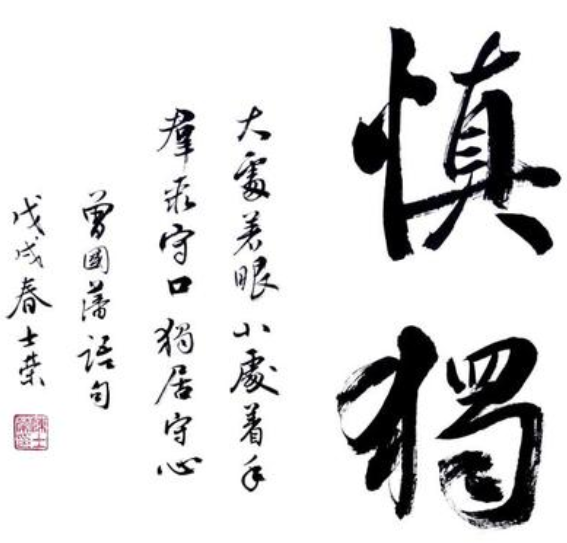 慎獨
大處着眼小處着手
羣居守口獨居守心
曾國藩語句
戊戌春士荣